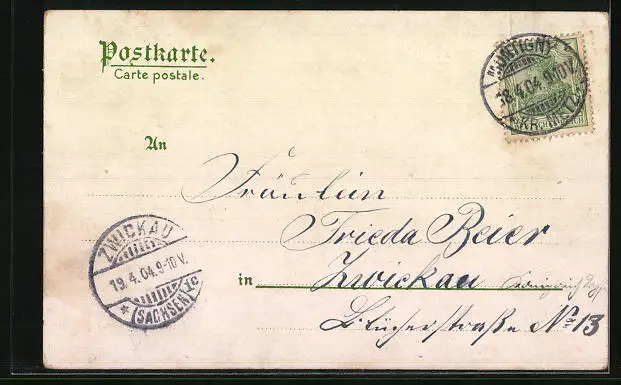 Postkarte.
Carte postale.
MONTIGNY
18.4.04.9-10V.
KR. METZ
An
Fräulein
Frieda Beier
in Zwickau
Blücherstraße No 13
ZWICKAU
19.4.04.9-10V.
* (SACHSEN) 1c